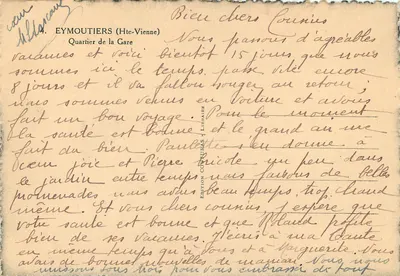 Bien chers Cousins
EYMOUTIERS (Hte-Vienne)
Quartier de la Gare
Nous passons d'agréables
vacances et voici bientôt 15 jours que nous
sommes ici le temps passe vite encore
8 jours et il va falloir songer au retour,
nous sommes venus en voiture et avons
fait un bon voyage. Pour le moment
la santé est bonne et le grand air me
fait du bien. Paulette s'en donne à
cœur joie et Pierre bricole un peu dans
le jardin entre temps nous faisons de belles
promenades nous avons beau temps trop chaud
même. Et vous chers cousins j'espère que
votre santé est bonne et que Roland profite
bien de ses vacances. J'écris à ma tante
en même temps qu'à vous et à Marguerite. Vous
avez de bonnes nouvelles de maman. Vous nous
unissons tous trois pour vous embrasser